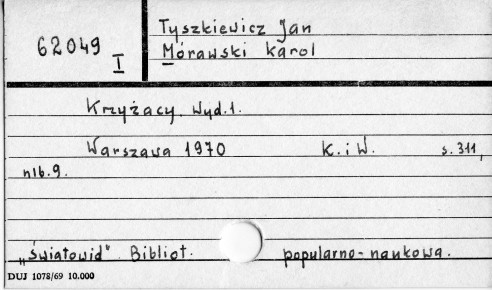 62049 I
Tyszkiewicz Jan
Mórawski Karol
Krzyżacy. Wyd.1.
Warszawa 1970 K.iW. s.311,
nlb.9.
„Światowid" Bibliot. popularno-naukowa.
DUJ 1078/69 10.000